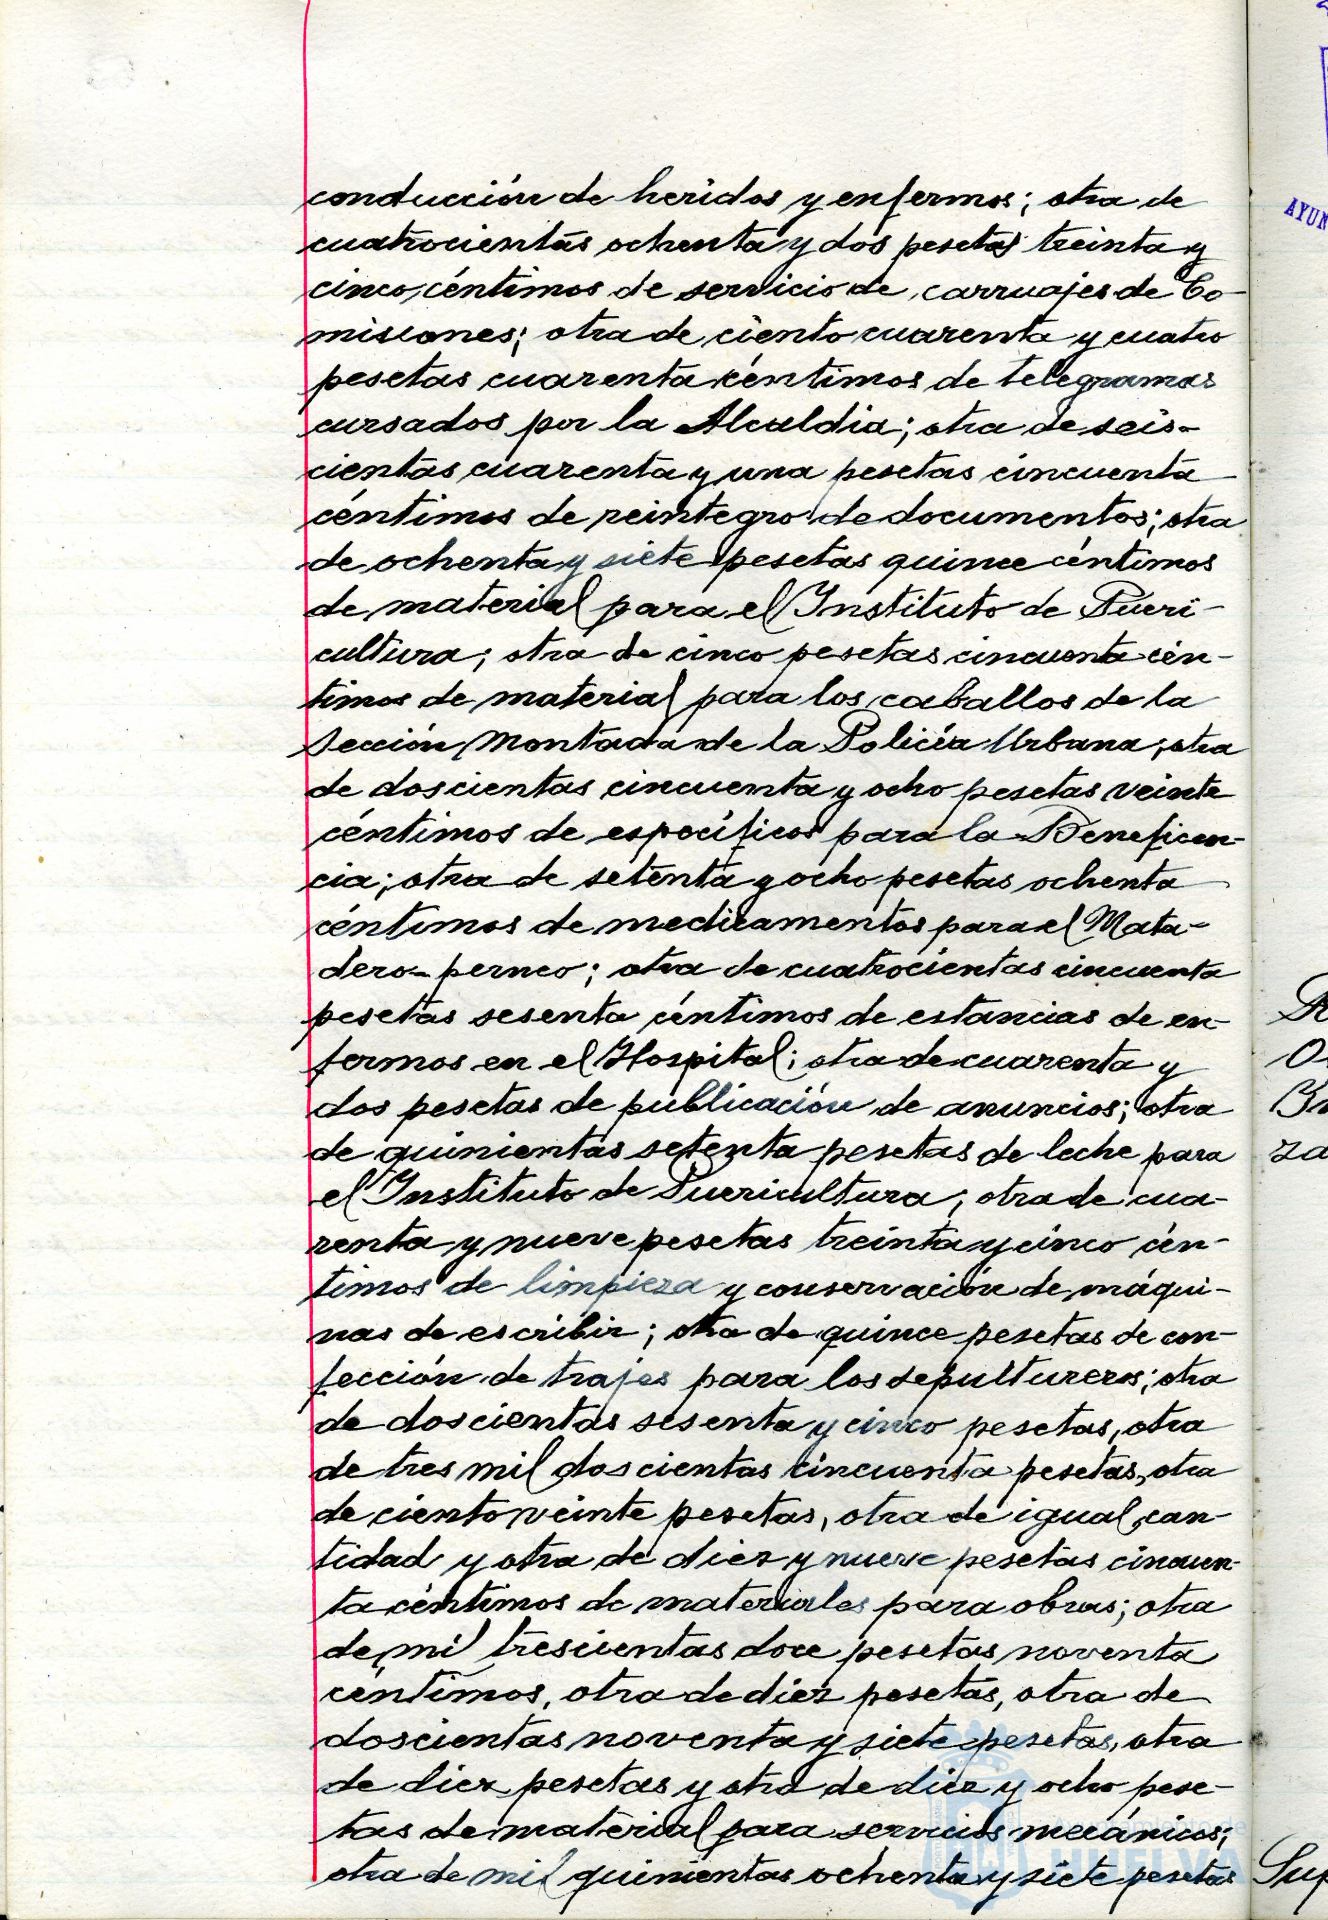 conducción de heridos y enfermos; otra de
cuatrocientas ochenta y dos pesetas treinta y
cinco céntimos de servicio de carruajes de Co-
misiones; otra de ciento cuarenta y cuatro
pesetas cuarenta céntimos de telegramas
cursados por la Alcaldia; otra de seis-
cientas cuarenta y una pesetas cincuenta
céntimos de reintegro de documentos; otra
de ochenta y siete pesetas quince céntimos
de material para el Instituto de Pueri-
cultura; otra de cinco pesetas cincuenta cén-
timos de material para los caballos de la
Sección Montada de la Policía Urbana; otra
de doscientas cincuenta y ocho pesetas veinte
céntimos de específicos para la Beneficen-
cia; otra de setenta y ocho pesetas ochenta
céntimos de medicamentos para el Mata-
dero-perneo; otra de cuatrocientas cincuenta
pesetas sesenta céntimos de estancias de en-
fermos en el Hospital; otra de cuarenta y
dos pesetas de publicación de anuncios; otra
de quinientas setenta pesetas de leche para
el Instituto de Puericultura; otra de cua-
renta y nueve pesetas treinta y cinco cén-
timos de limpieza y conservación de máqui-
nas de escribir; otra de quince pesetas de con-
fección de trajes para los sepultureros; otra
de doscientas sesenta y cinco pesetas, otra
de tres mil doscientas cincuenta pesetas, otra
de ciento veinte pesetas, otra de igual can-
tidad y otra de diez y nueve pesetas cincuen-
ta céntimos de materiales para obras; otra
de mil trescientas doce pesetas noventa
céntimos, otra de diez pesetas, otra de
doscientas noventa y siete pesetas, otra
de diez pesetas y otra de diez y ocho pese-
tas de material para servicios mecánicos;
otra de mil quinientas ochenta y siete pesetas
HUELVA